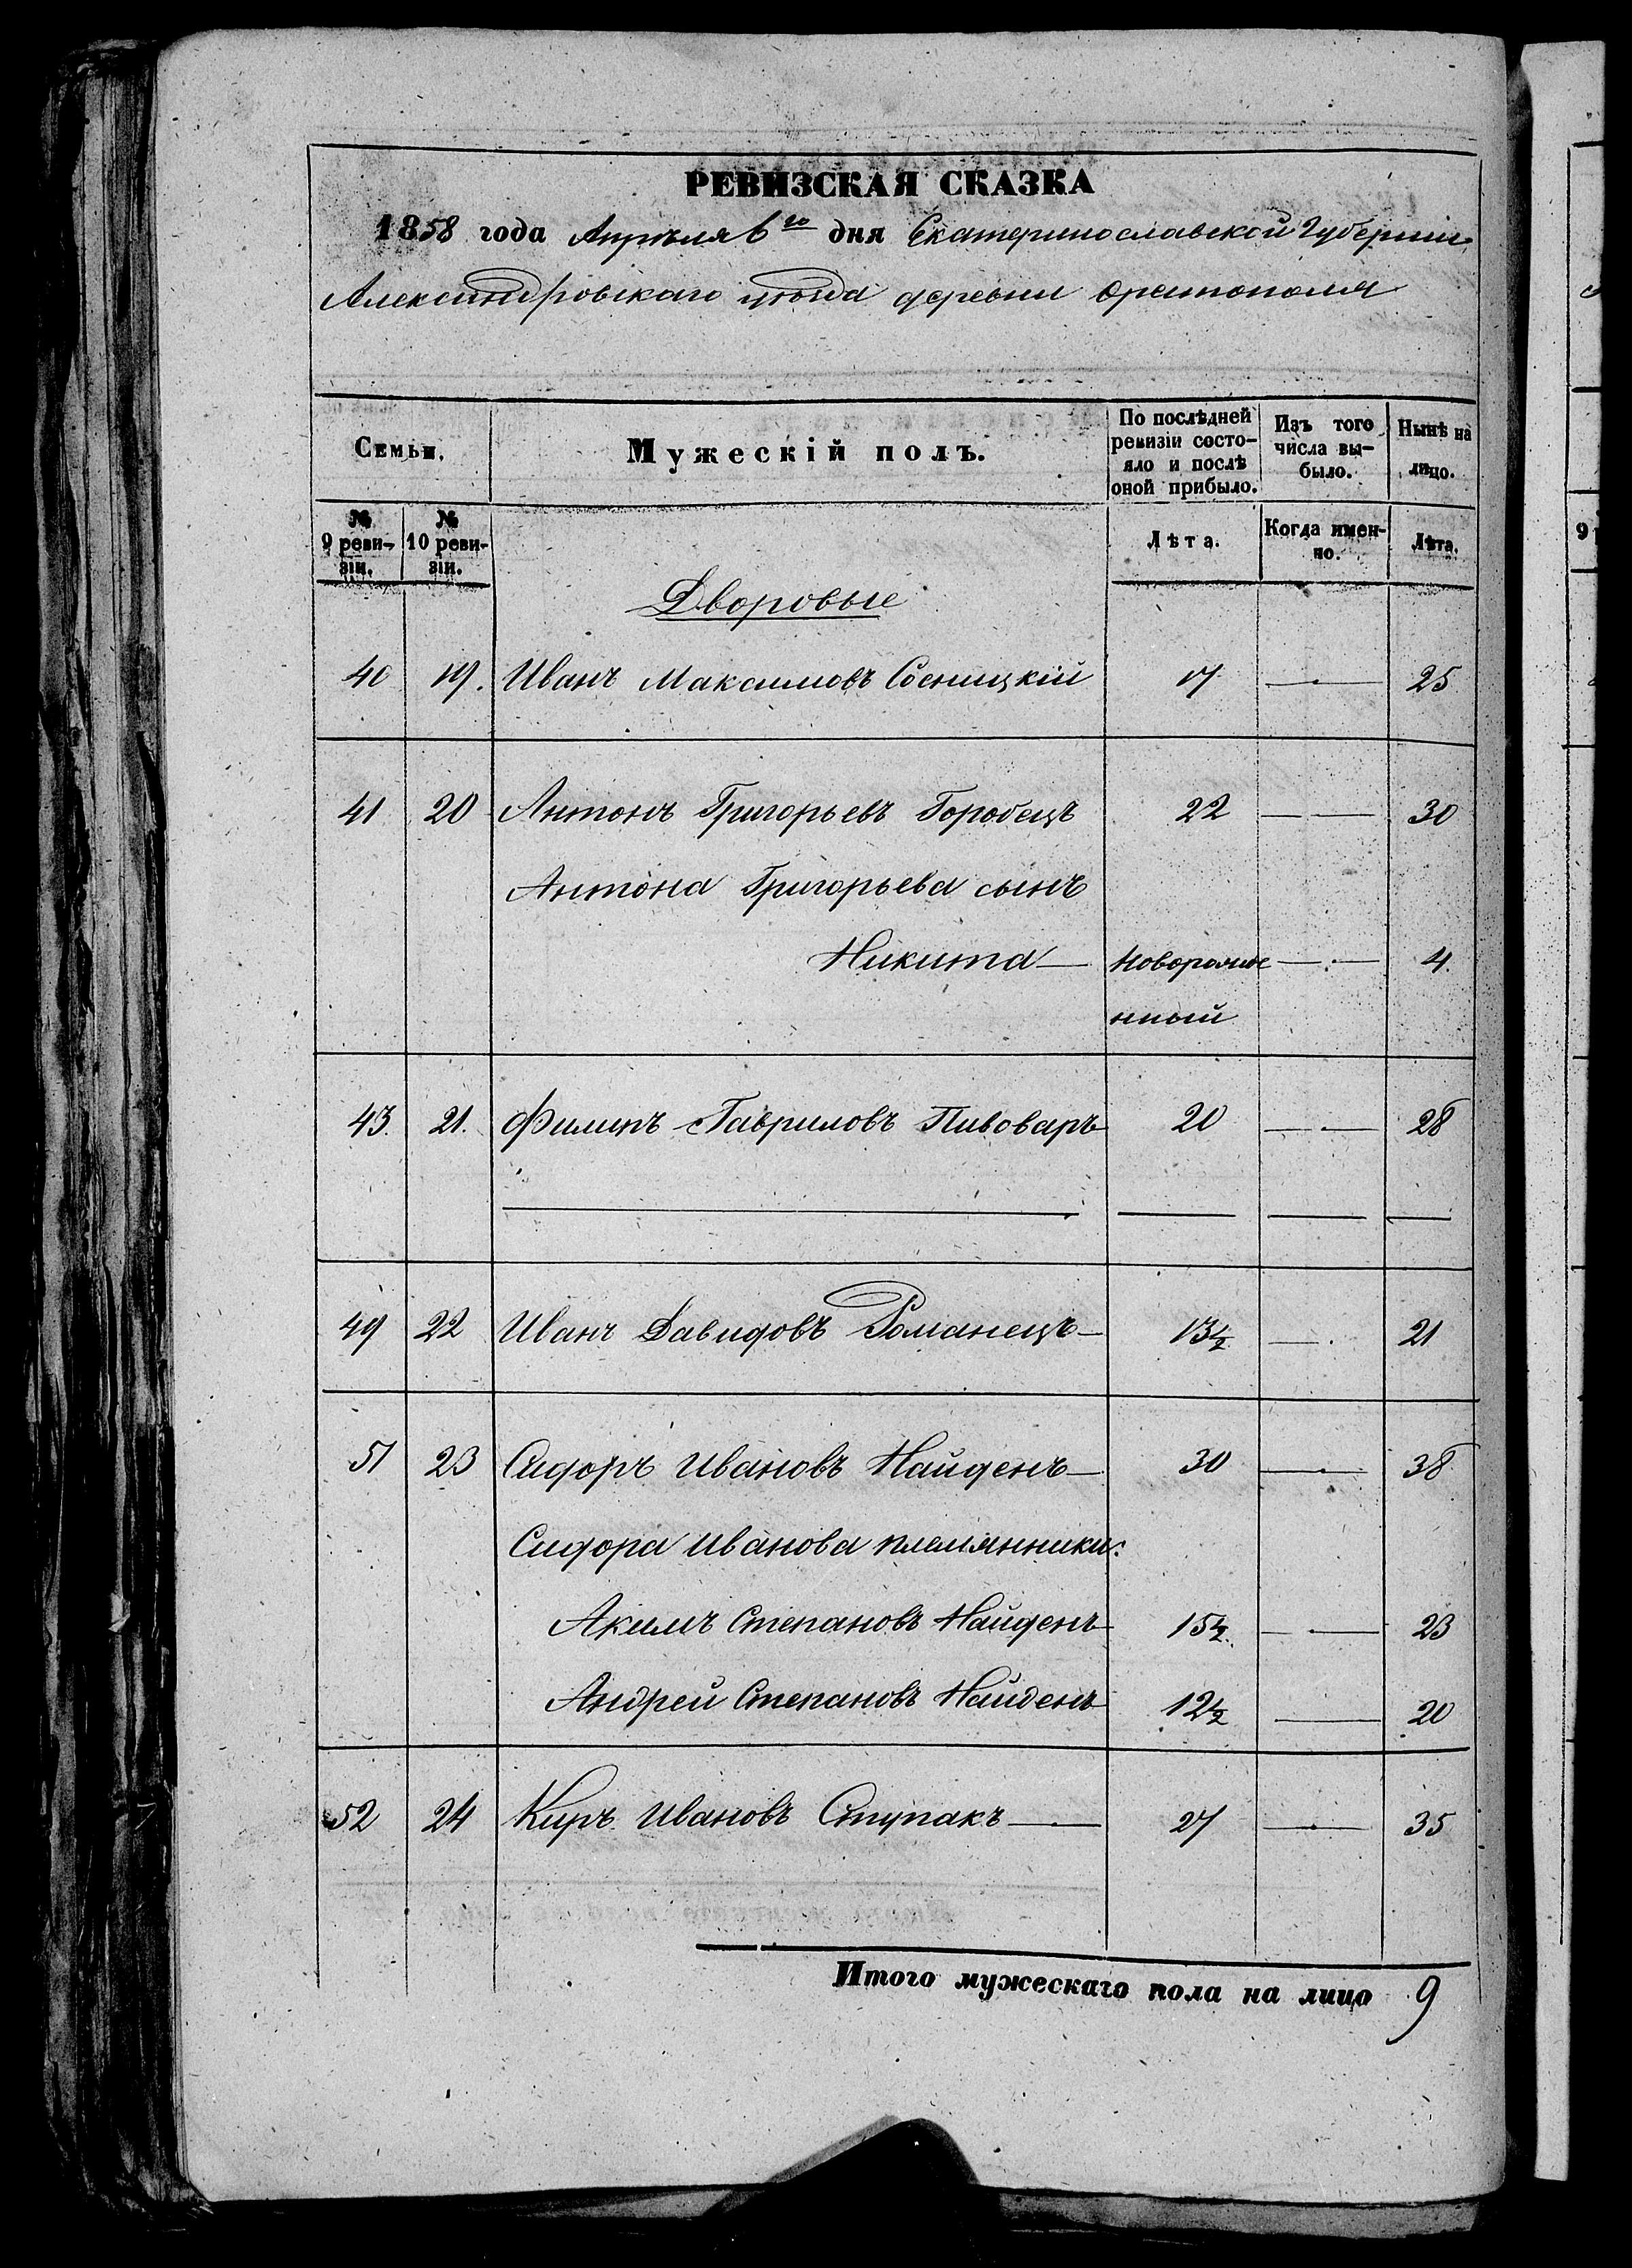 РЕВИЗСКАЯ СКАЗКА
1858 года Апрѣля 6го дня Екатеринославской Губерніи
Александровскаго уѣзда деревни Орестополя
Семьи. Мужескій полъ. По послѣдней ревизіи состояло и послѣ оной прибыло. Изъ того числа выбыло. Нынѣ на лицо.
№ 9 ревизіи. № 10 ревизіи. Лѣта. Когда именно. Лѣта.
Дворовые
40 19. Иванъ Максимовъ Сосницкій 17 — 25
41 20 Антонъ Григорьевъ Горобецъ 22 — — 30
Антона Григорьева сынъ
Никита — новорожде — 4.
нный
43. 21. Филипъ Гавриловъ Пивоваръ 20 — — 28
49 22 Иванъ Давидовъ Романецъ — 13½ — 21
51 23 Сидоръ Ивановъ Найденъ — 30 — 38
Сидора Иванова племянники:
Акимъ Степановъ Найденъ 15½. — 23
Андрей Степановъ Найденъ 12½ — 20
52 24 Киръ Ивановъ Ступакъ — 27 — 35
Итого мужескаго пола на лицо 9